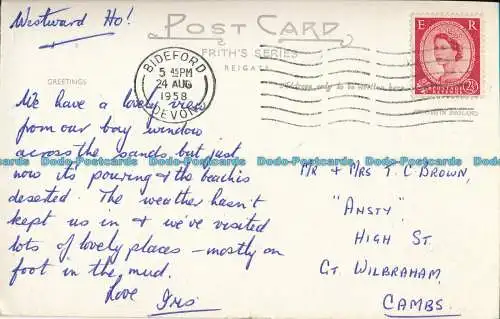 Westward Ho!
POST CARD
FRITH'S SERIES
REIGATE
GREETINGS
BIDEFORD
5 45PM
24 AUG
1958
DEVON
E R
2½D
We have a lovely view
from our bay window
across the sands but just
now its pouring & the beach is
deserted. The weather hasn't
kept us in & we've visited
lots of lovely places – mostly on
foot in the mud.
Love Iris
Address only to be written here
MR & MRS T. C BROWN,
"ANSTY"
HIGH ST.
GT. WILBRAHAM,
CAMBS.
Dodo-Postcards Dodo-Postcards Dodo-Postcards Dodo-Postcards Dodo-Postcards